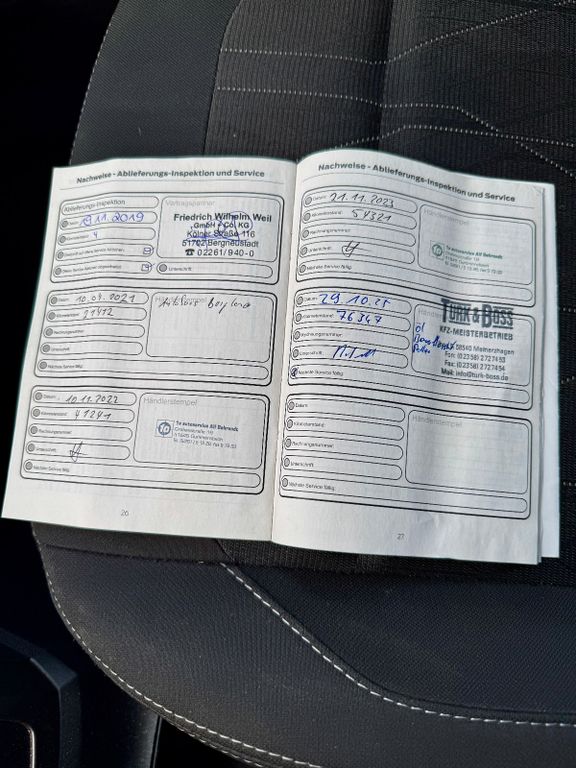 Nachweise - Ablieferungs-Inspektion und Service
Ablieferungs-Inspektion
Datum: 19.11.2019
Kilometerstand: 4
Vertragspartner
Friedrich Wilhelm Weil
GmbH + Co. KG
Kölner Straße 116
51702 Bergneustadt
☎ 02261/940-0
Unterschrift:
Datum: 10.09.2021
Kilometerstand: 21412
Rechnungsnummer:
Unterschrift:
Nächste Service fällig:
Händlerstempel
Datum: 10.11.2022
Kilometerstand: 41241
Rechnungsnummer:
Unterschrift:
Nächste Service fällig:
Händlerstempel
Tu autoservice Alf Behrendt
51645 Gummersbach
26
Nachweise - Ablieferungs-Inspektion und Service
Datum: 21.11.2023
Kilometerstand: 54321
Rechnungsnummer:
Unterschrift:
Nächste Service fällig:
Händlerstempel
Tu autoservice Alf Behrendt
51645 Gummersbach
Datum: 29.10.25
Kilometerstand: 76347
Rechnungsnummer:
Unterschrift:
Nächste Service fällig:
TURK & BOSS
KFZ-MEISTERBETRIEB
Öl
58540 Meinerzhagen
Fon: (02358) 2727453
Fax: (02358) 2727454
Mail: info@turk-boss.de
Datum:
Kilometerstand:
Rechnungsnummer:
Unterschrift:
Nächste Service fällig:
Händlerstempel
27